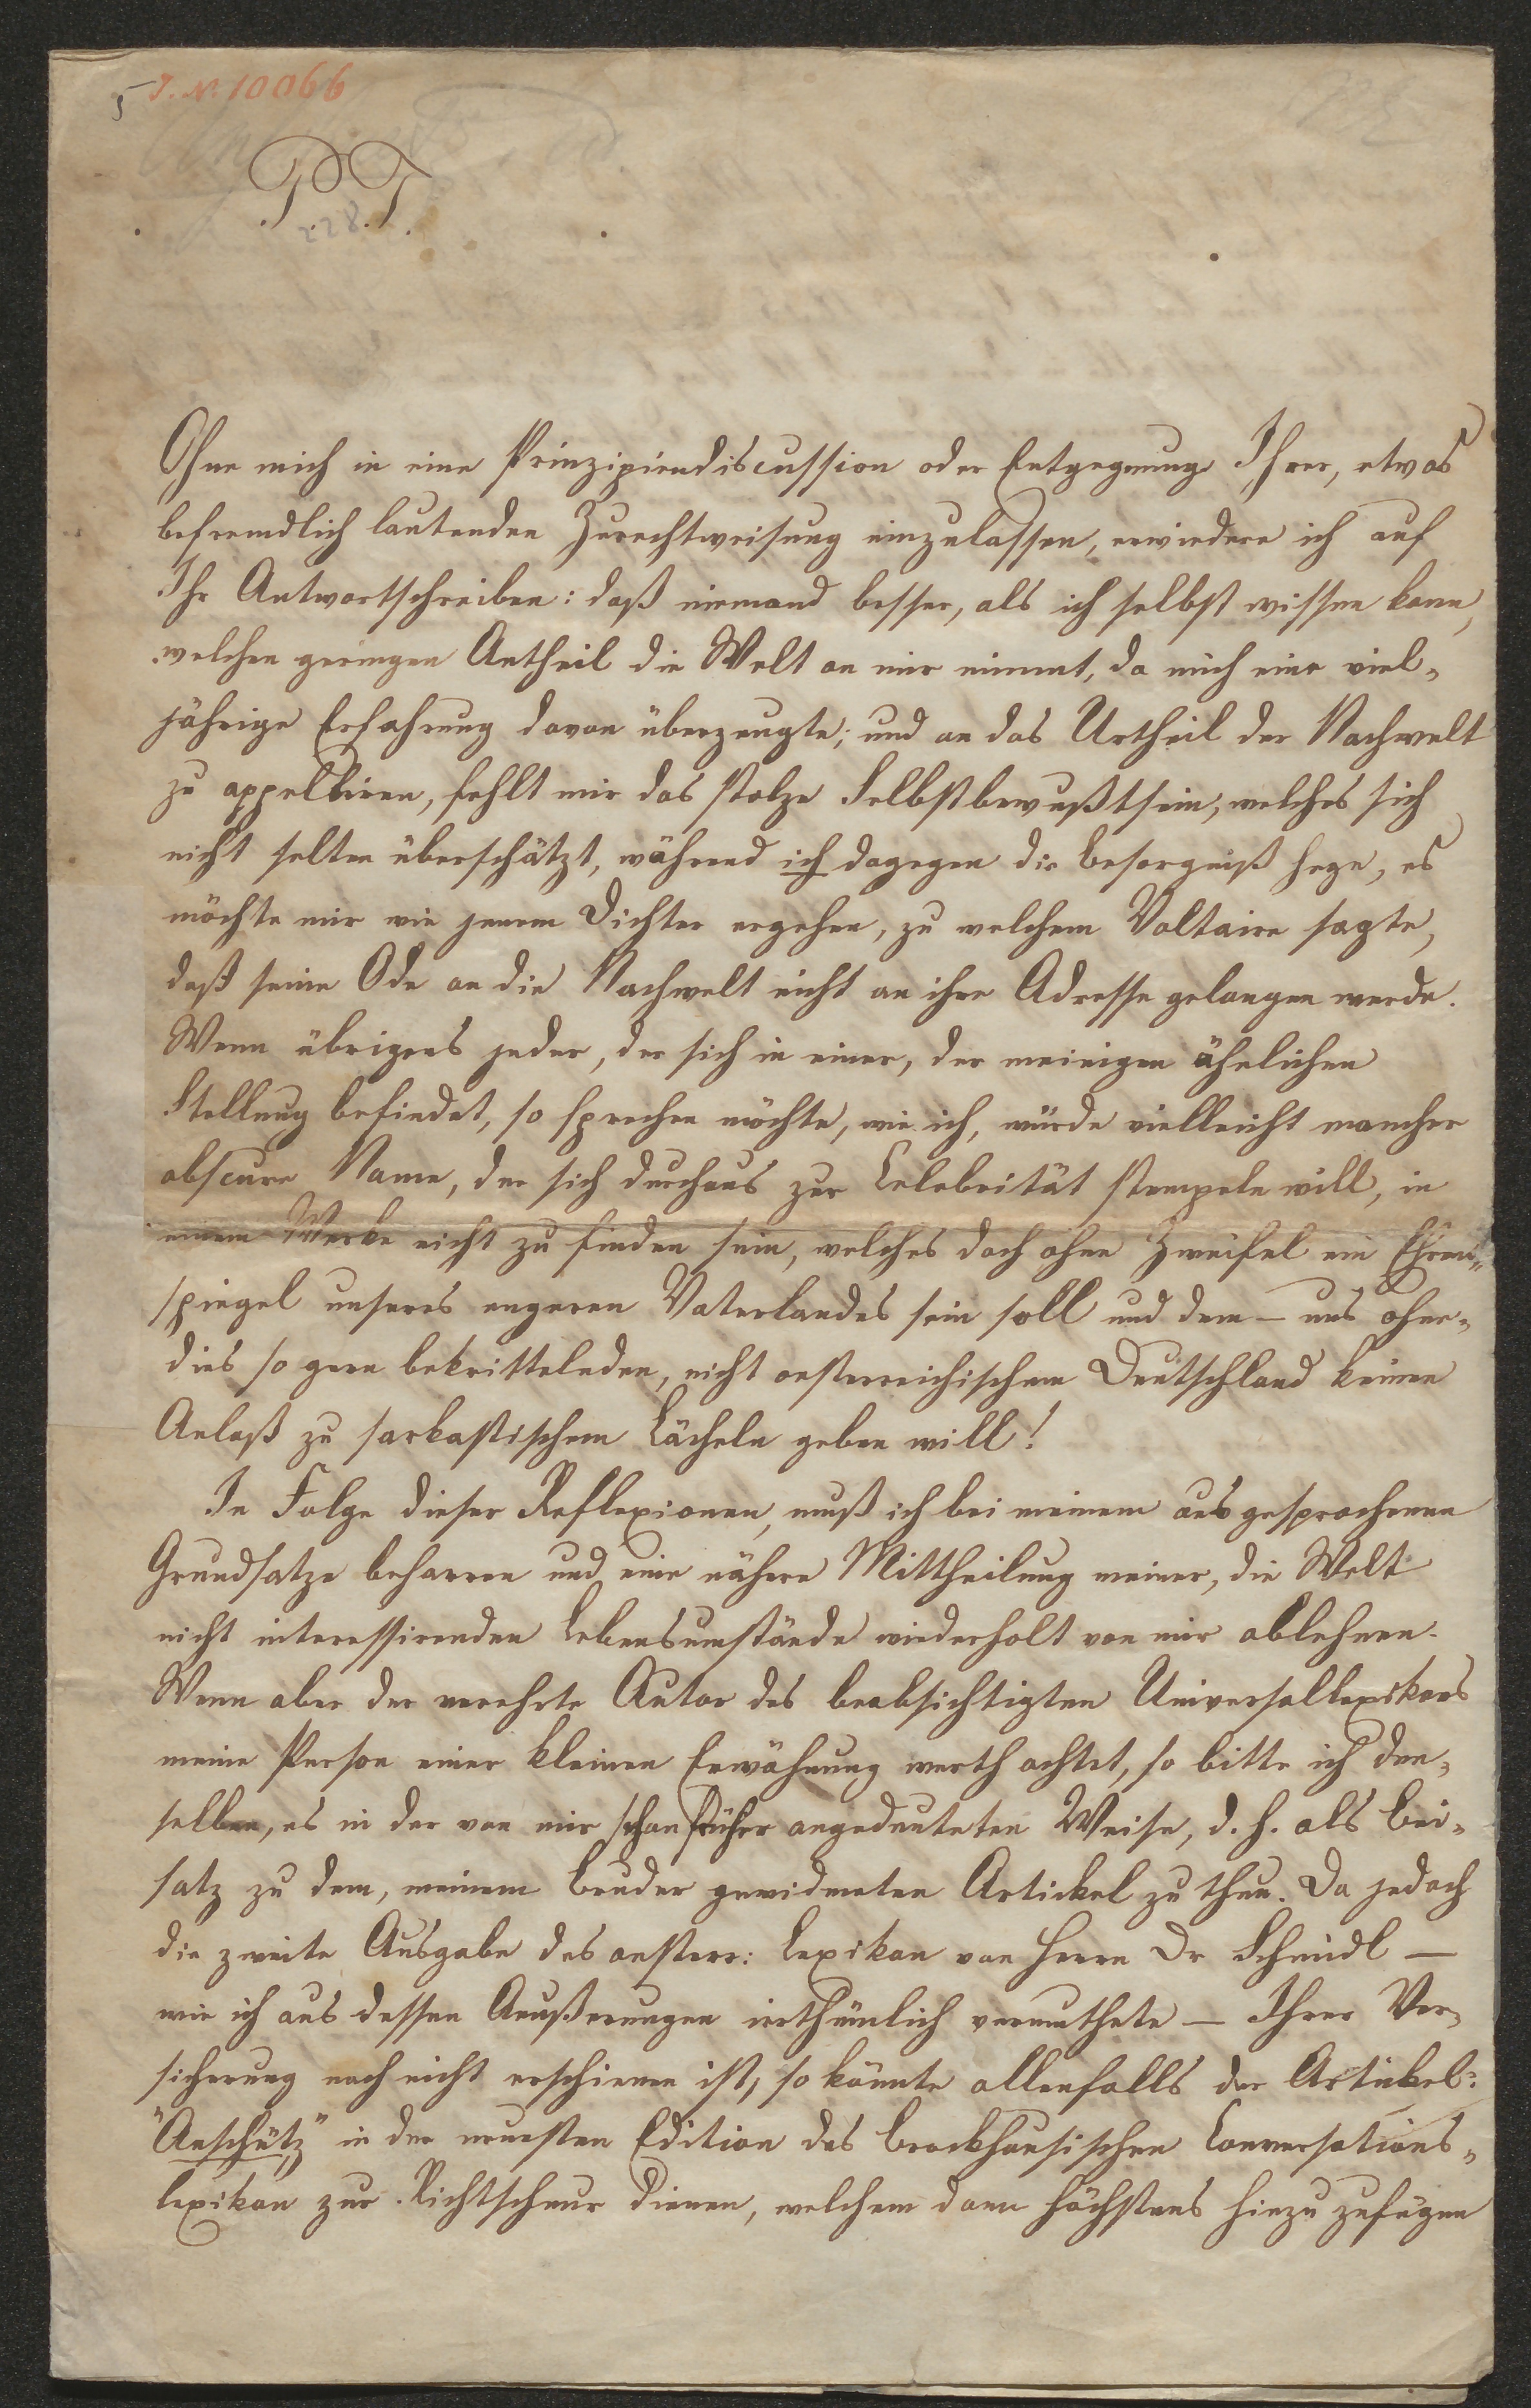 5 I. N. 10066
P. T.
228.
Ohne mich in eine Prinzipiendiscussion oder Entgegnung Ihrer, etwas
befremdlich lautenden Zurechtweisung einzulassen, erwiedere ich auf
Ihr Antwortschreiben: daß niemand besser, als ich selbst wissen kann,
welchen geringen Antheil die Welt an mir nimmt, da mich eine viel-
jährige Erfahrung davon überzeugte; und an das Urtheil der Nachwelt
zu appelliren, fehlt mir das stolze Selbstbewußtsein, welches sich
nicht selten überschätzt, während ich dagegen die Besorgniß hege, es
möchte mir wie jenem Dichter ergehen, zu welchem Voltaire sagte,
daß seine Ode an die Nachwelt nicht an ihre Adresse gelangen werde.
Wenn übrigens jeder, der sich in einer, der meinigen ähnlichen
Stellung befindet, so sprechen möchte, wie ich, würde vielleicht mancher
obscure Name, der sich durchaus zur Celebrität stempeln will, in
einem Werke nicht zu finden sein, welches doch ohne Zweifel ein Ehren-
spiegel unseres engeren Vaterlandes sein soll und dem – uns ohne-
dies so gern bekrittelnden, nicht oesterreichischem Deutschland keinen
Anlaß zu sarkastischem Lächeln geben will!
In Folge dieser Reflexionen, muß ich bei meinem ausgesprochenen
Grundsatze beharren und eine nähere Mittheilung meiner, die Welt
nicht interessirenden Lebensumstände wiederholt von mir ablehnen.
Wenn aber der verehrte Autor des beabsichtigten Universallexikons
meine Person einer kleinen Erwähnung werth achtet, so bitte ich den-
selben, es in der von mir schon früher angedeuteten Weise, d. h. als Bei-
satz zu dem, meinem Bruder gewidmeten Artickel zu thun. Da jedoch
die zweite Ausgabe des oesterr: Lexikon von Herrn Dr Schmidl –
wie ich aus dessen Aeußerungen irrthümlich vermuthete – Ihrer Ver-
sicherung nach nicht erschienen ist, so könnte allenfalls der Artickel:
"Anschütz" in der neuesten Edition des Brockhausischen Conversations-
lexikon zur Richtschnur dienen, welchem dann höchstens hinzu zufügen